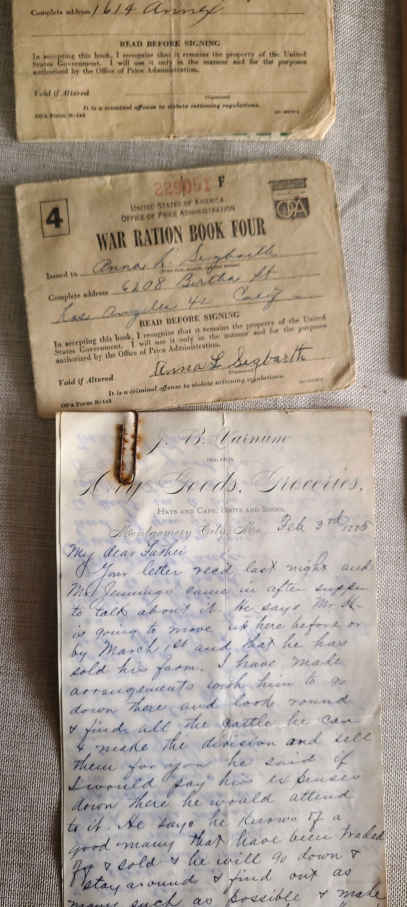 Complete address 1614 Annex
READ BEFORE SIGNING
In accepting this book, I recognize that it remains the property of the United
States Government. I will use it only in the manner and for the purposes
authorized by the Office of Price Administration.
Void if Altered
(Signature)
It is a criminal offense to violate rationing regulations.
OPA Form R-145
F
4
UNITED STATES OF AMERICA
OFFICE OF PRICE ADMINISTRATION
OPA
WAR RATION BOOK FOUR
Issued to Anna L. Sigbarth
Complete address 6208 Bertha St
Los Angeles 42 Calif
READ BEFORE SIGNING
In accepting this book, I recognize that it remains the property of the United
States Government. I will use it only in the manner and for the purposes
authorized by the Office of Price Administration.
Void if Altered Anna L Sigbarth
(Signature)
It is a criminal offense to violate rationing regulations.
OPA Form R-145
J. B. Varnum
DEALER IN
Dry Goods, Groceries,
HATS AND CAPS, BOOTS AND SHOES,
Montgomery City, Mo. Feb 3rd
My dear Father
Your letter rec'd last night and
Mr Jennings came in after supper
to talk about it. he says Mr
is going to move up here before or
by March 1st and that he has
sold his farm. I have made
arrangements with him to go
down there and look round
& find all the cattle he can
& make the division and sell
them for you he said if
I would pay his expenses
down there he would attend
to it. He says he knows of a
good many that have been traded
for & sold & he will go down &
stay around & find out as
many such as possible & make